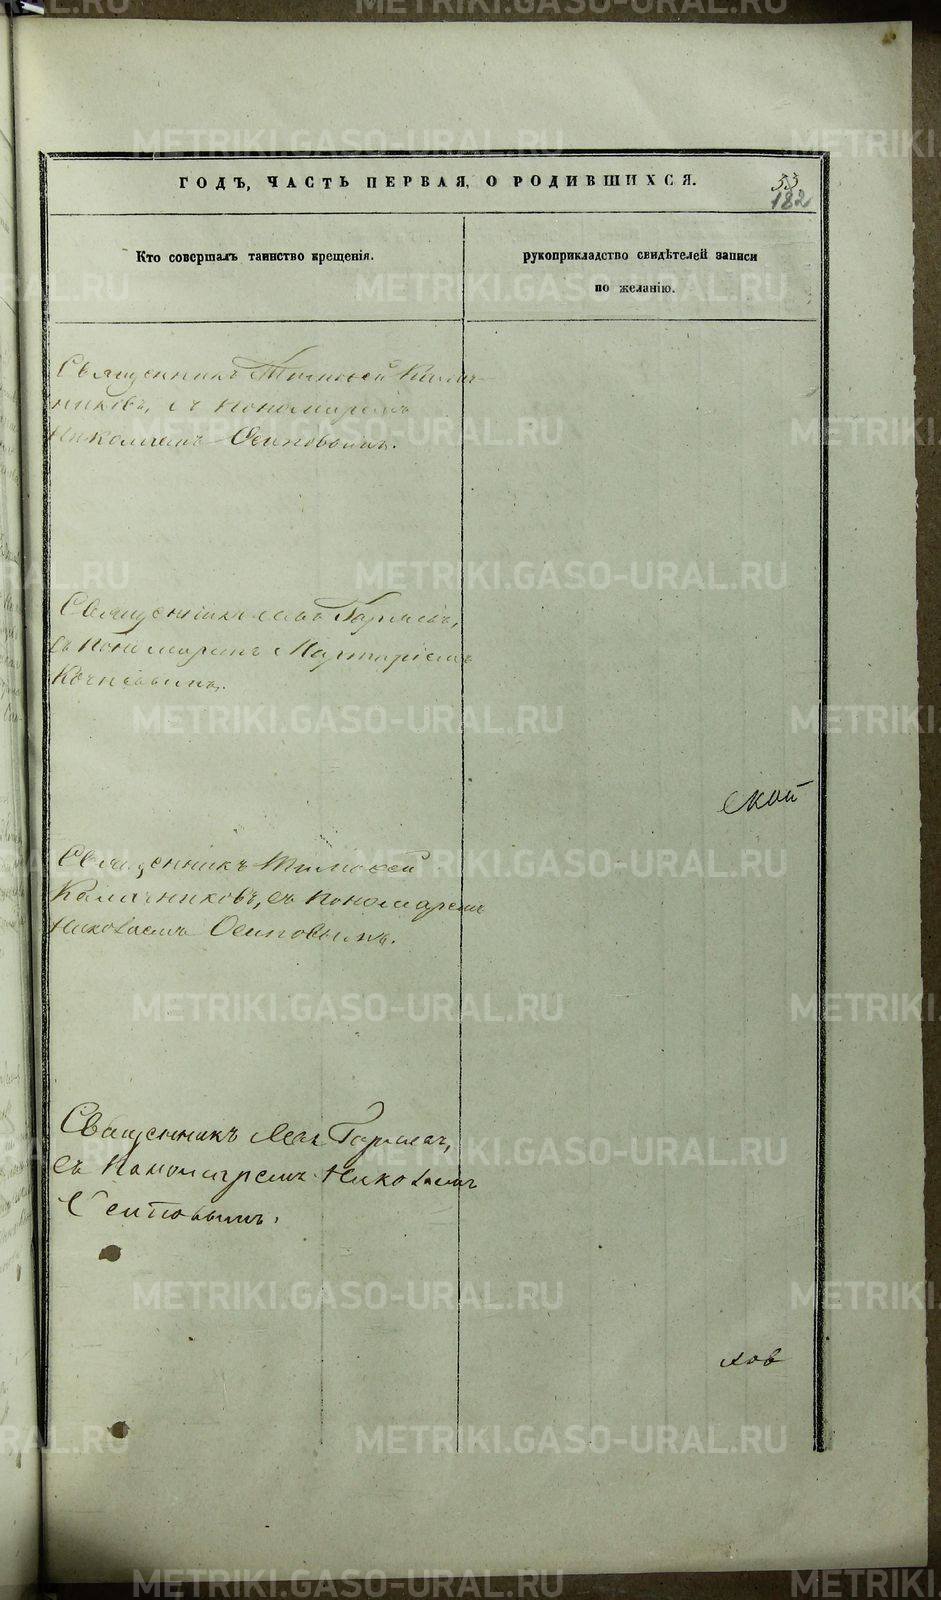 ГОДЪ, ЧАСТЬ ПЕРВАЯ, О РОДИВШИХСЯ.
53
182
Кто совершалъ таинство крещенія.
рукоприкладство свидѣтелей записи
по желанію.
Священникъ Тимоѳей Калач-
никовъ, съ Пономаремъ
Николаемъ Осиповымъ.
Священникъ Левъ
съ Пономаремъ
ской
Священникъ Тимоѳей
Калачниковъ, съ Пономаремъ
Николаемъ Осиповымъ.
Священникъ Левъ
съ Пономаремъ Николаемъ
Осиповымъ.
ков
METRIKI.GASO-URAL.RU